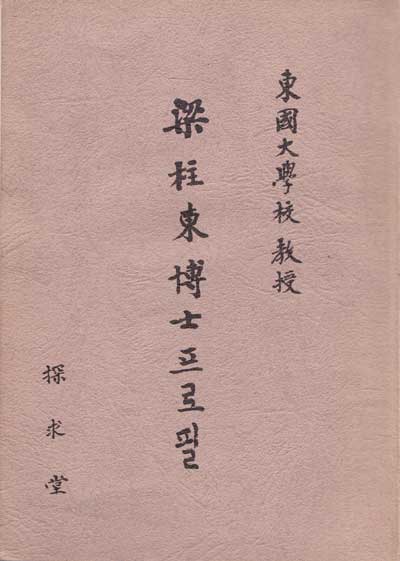 東國大學校 教授
梁柱東博士프로필
探求堂